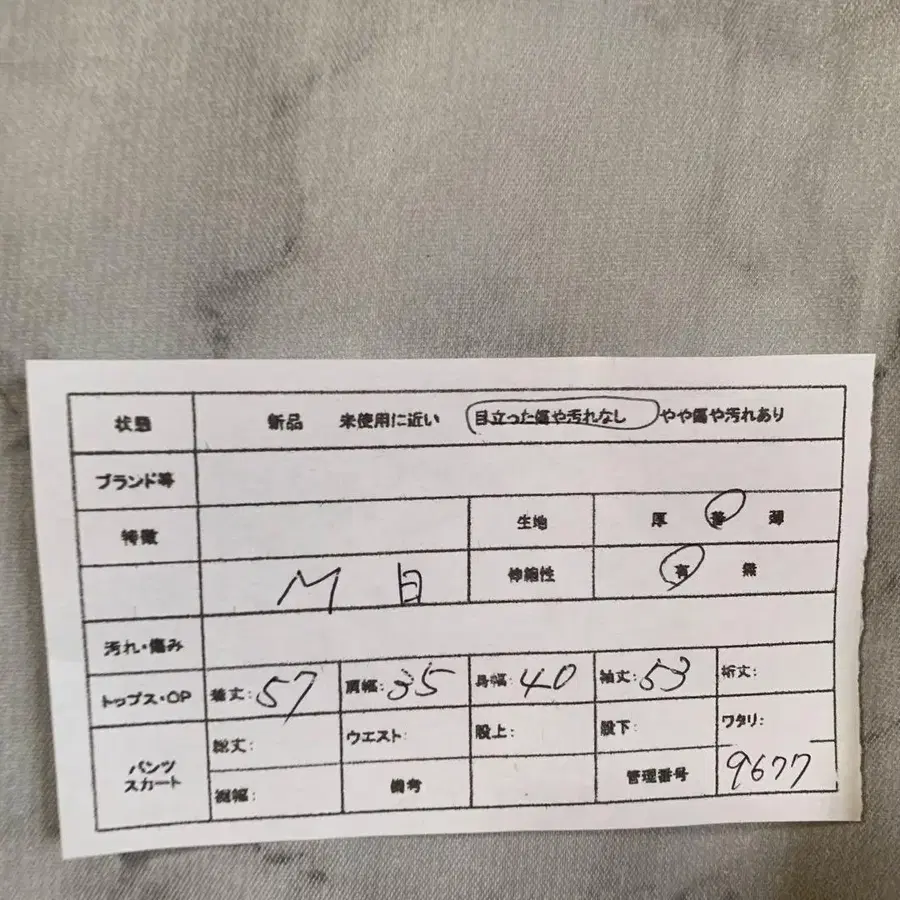 状態 新品 未使用に近い 目立った傷や汚れなし やや傷や汚れあり
ブランド等
特徴 生地 厚 普 薄
M 目 伸縮性 有 無
汚れ・傷み
トップス・OP 着丈:57 肩幅:35 身幅:40 袖丈:53 裄丈:
パンツ スカート 総丈: ウエスト: 股上: 股下: ワタリ:
裾幅: 備考 管理番号 9677